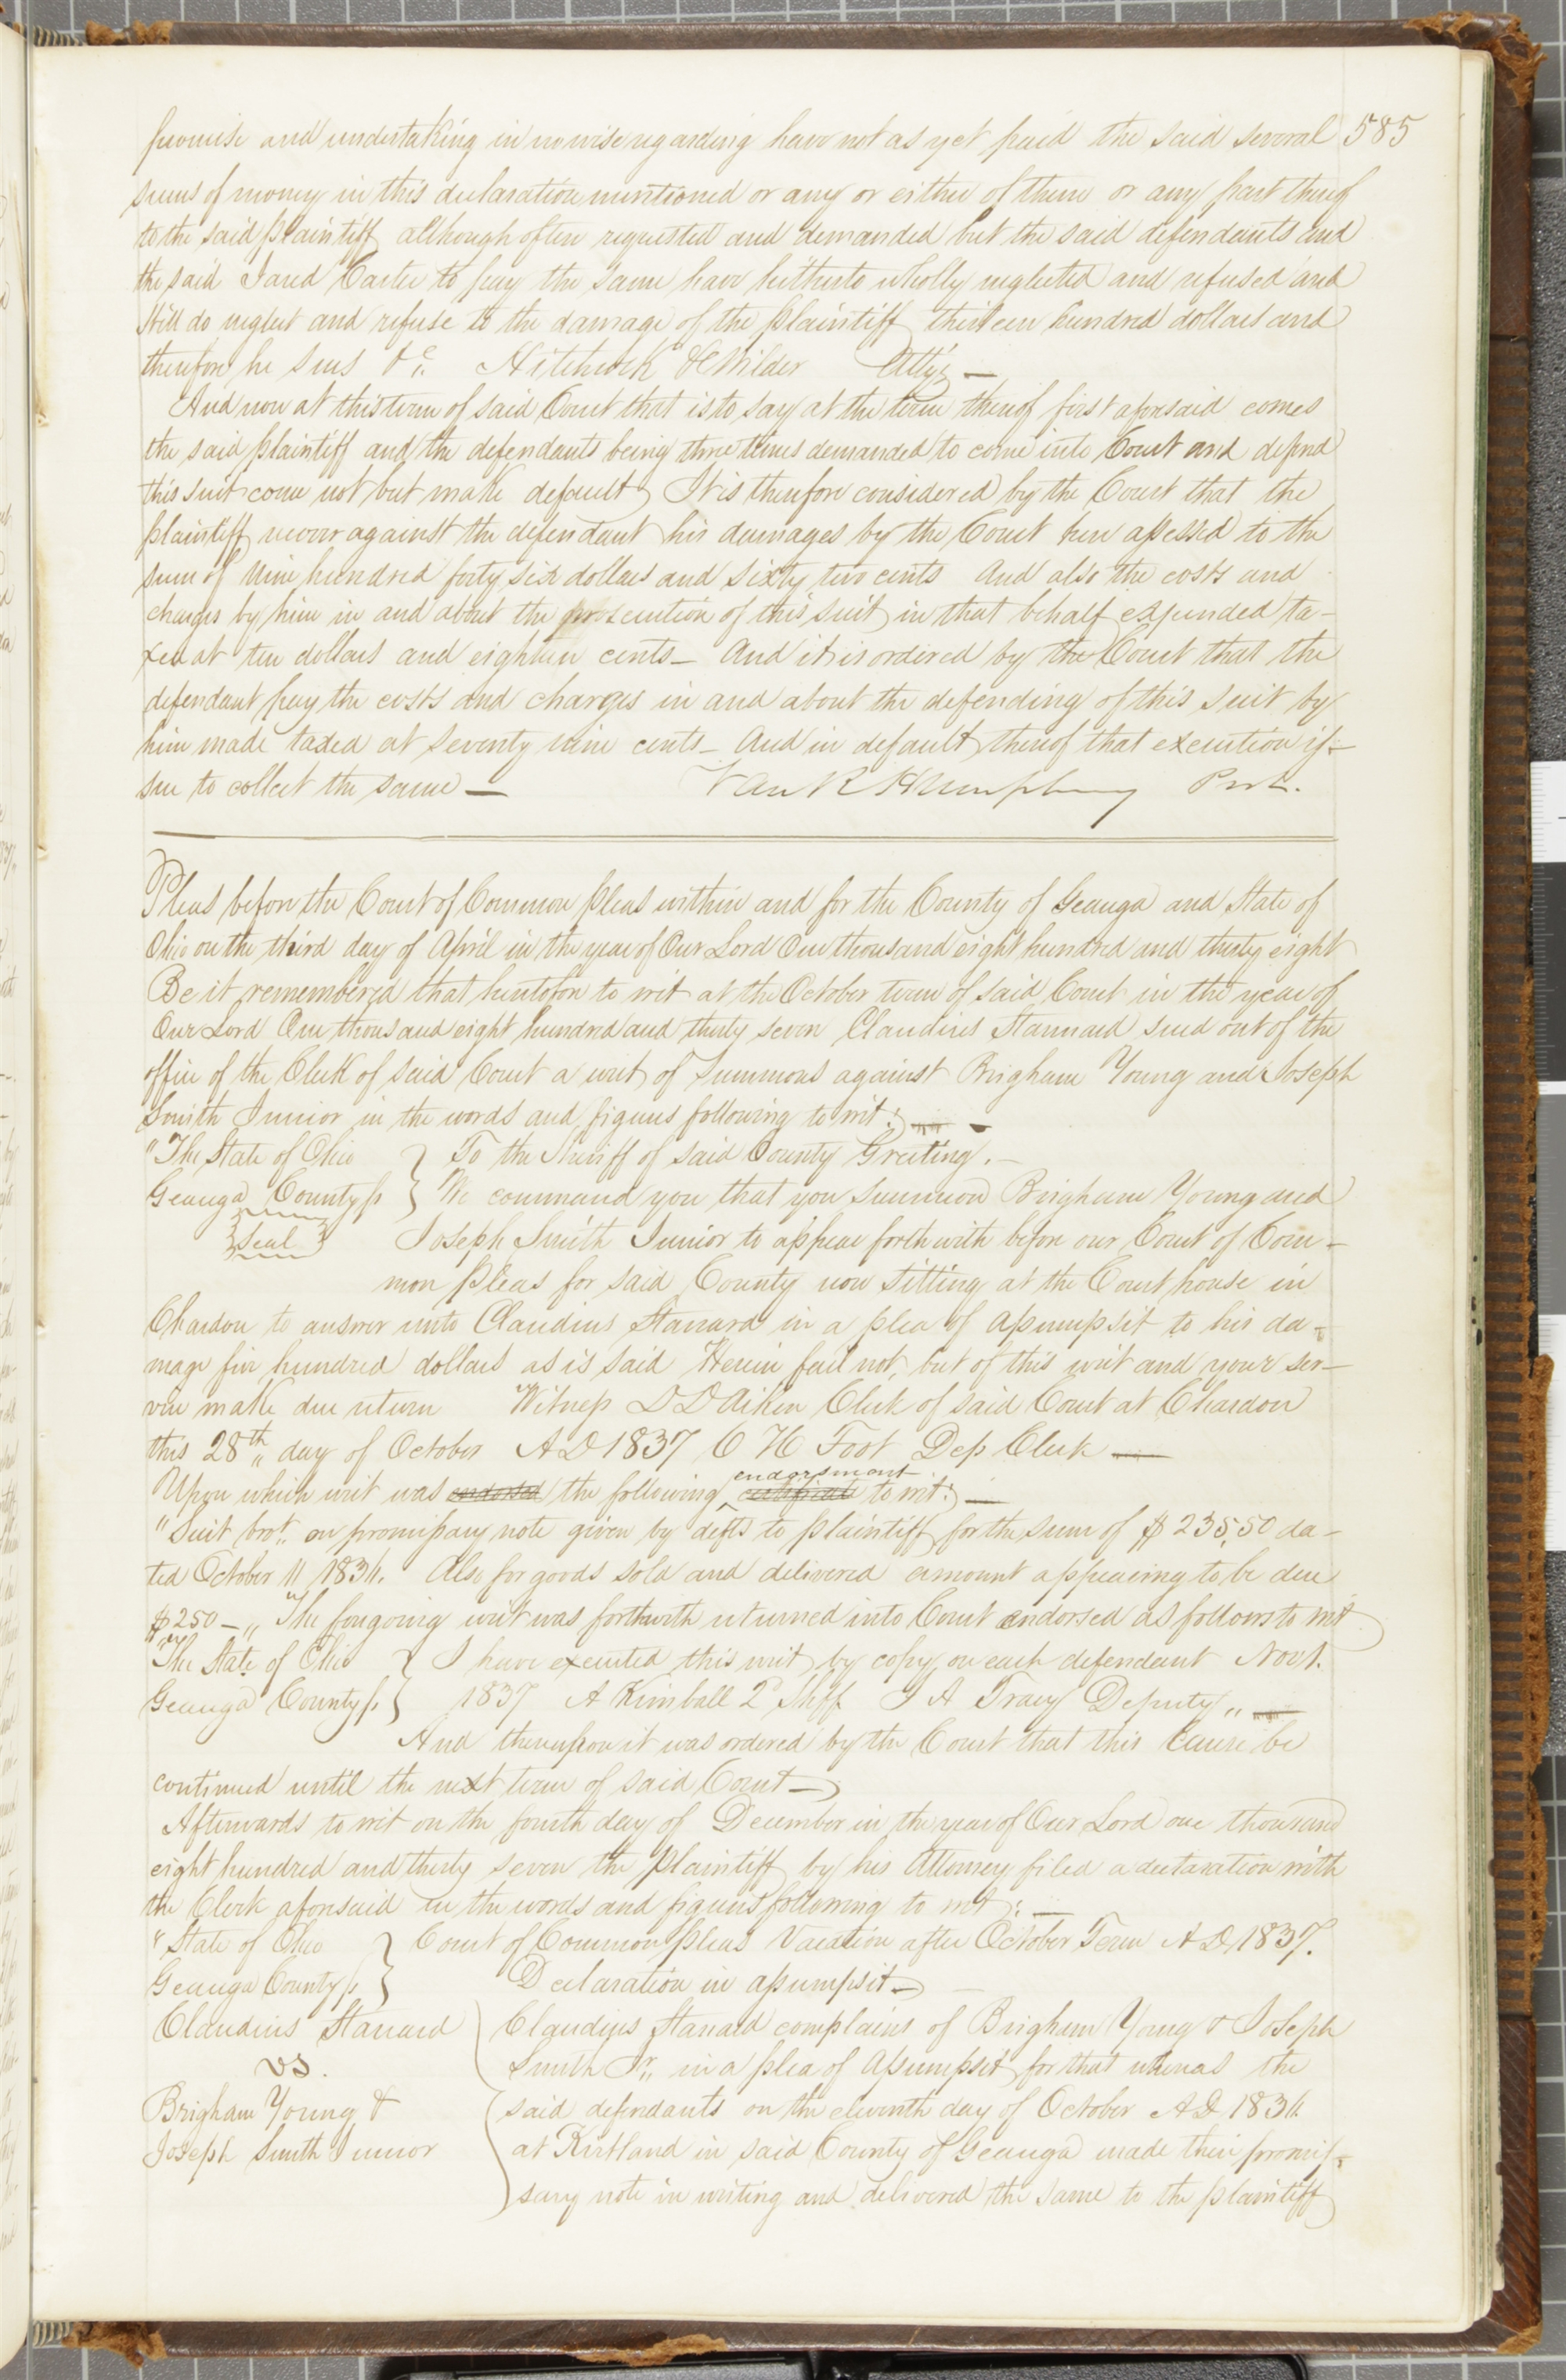 585
promise and undertaking in no wise regarding have not as yet paid the said several
sums of money in this declaration mentioned or any or either of them or any part thereof
to the said plaintiff although often requested and demanded but the said defendants and
the said Jared Carter to pay the same have hitherto wholly neglected and refused and
still do neglect and refuse to the damage of the plaintiff thirteen hundred dollars and
therefore he sues &c. Hitchcock & Wilder Attys —
And now at this term of said Court that is to say at the term thereof first aforesaid comes
the said plaintiff and the defendants being three times demanded to come into Court and defend
this suit come not but make default It is therefore considered by the Court that the
plaintiff recover against the defendant his damages by the Court here assessed to the
sum of Nine hundred forty six dollars and sixty two cents And also the costs and
charges by him in and about the prosecution of this suit in that behalf expended ta-
xed at ten dollars and eighteen cents — And it is ordered by the Court that the
defendant pay the costs and charges in and about the defending of this suit by
him made taxed at seventy nine cents — And in default thereof that execution is-
sue to collect the same — Van R Humphrey Prest.
Pleas before the Court of Common Pleas within and for the County of Geauga and State of
Ohio on the third day of April in the year of Our Lord One thousand eight hundred and thirty eight
Be it remembered that heretofore to wit at the October term of said Court in the year of
Our Lord One thousand eight hundred and thirty seven Claudius Stannard sued out of the
office of the Clerk of said Court a writ of Summons against Brigham Young and Joseph
Smith Junior in the words and figures following to wit: —
"The State of Ohio } To the Sheriff of said County Greeting. —
Geauga County ss } We command you that you summon Brigham Young and
Seal Joseph Smith Junior to appear forthwith before our Court of Com-
mon Pleas for said County now sitting at the Court house in
Chardon to answer unto Claudius Stanard in a plea of assumpsit to his da-
mage five hundred dollars as is said Herein fail not, but of this writ and your ser-
vice make due return Witness D D Aiken Clerk of said Court at Chardon
this 28th,, day of October A D 1837 O H Foot Dep Clerk —
Upon which writ was endorsed the following endorsment certificate to wit: —
"Suit brot.. on promissary note given by defts to plaintiff for the sum of $235,50 da-
ted October 11 1836. Also for goods sold and delivered amount appearing to be due
$250 —,, The foregoing writ was forthwith returned into Court endorsed as follows to wit
"The State of Ohio } I have executed this writ by copy on each defendant Nov 1.
Geauga County ss } 1837 A Kimball 2d Shff J A Tracy Deputy,, —
And thereupon it was ordered by the Court that this cause be
continued until the next term of said Court —
Afterwards to wit on the fourth day of December in the year of Our Lord one thousand
eight hundred and thirty seven the Plaintiff by his Attorney filed a declaration with
the Clerk aforesaid in the words and figures following to wit: —
"State of Ohio } Court of Common Pleas Vacation after October Term A D 1837.
Geauga County ss } Declaration in assumpsit —
Claudius Stanard ) Claudius Stanard complains of Brigham Young & Joseph
vs. ( Smith Jr,, in a plea of Assumpsit for that whereas the
Brigham Young & ( said defendants on the eleventh day of October A D 1836
Joseph Smith Junior ( at Kirtland in said County of Geauga made their promis-
) sary note in writing and delivered the same to the plaintiff